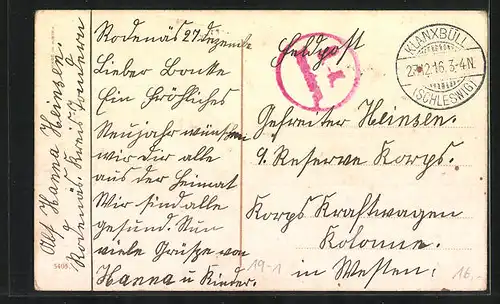 Rodenäs 27 Dezember
Lieber
Ein fröhliches
Neujahr wünschen
wir dir alle
aus der Heimat
Wir sind alle
gesund. Nun
viele Grüsse von
Hanna u Kinder.
Abf Hanna Heinsen.
Rodenäs. Kreis Tondern
Feldpost
KLANXBÜLL
27.12.16. 3-4N.
(SCHLESWIG)
Gefreiter Heinsen.
9. Reserve Korps.
Korps Kraftwagen
Kolonne.
in Westen.
19-1
16,-